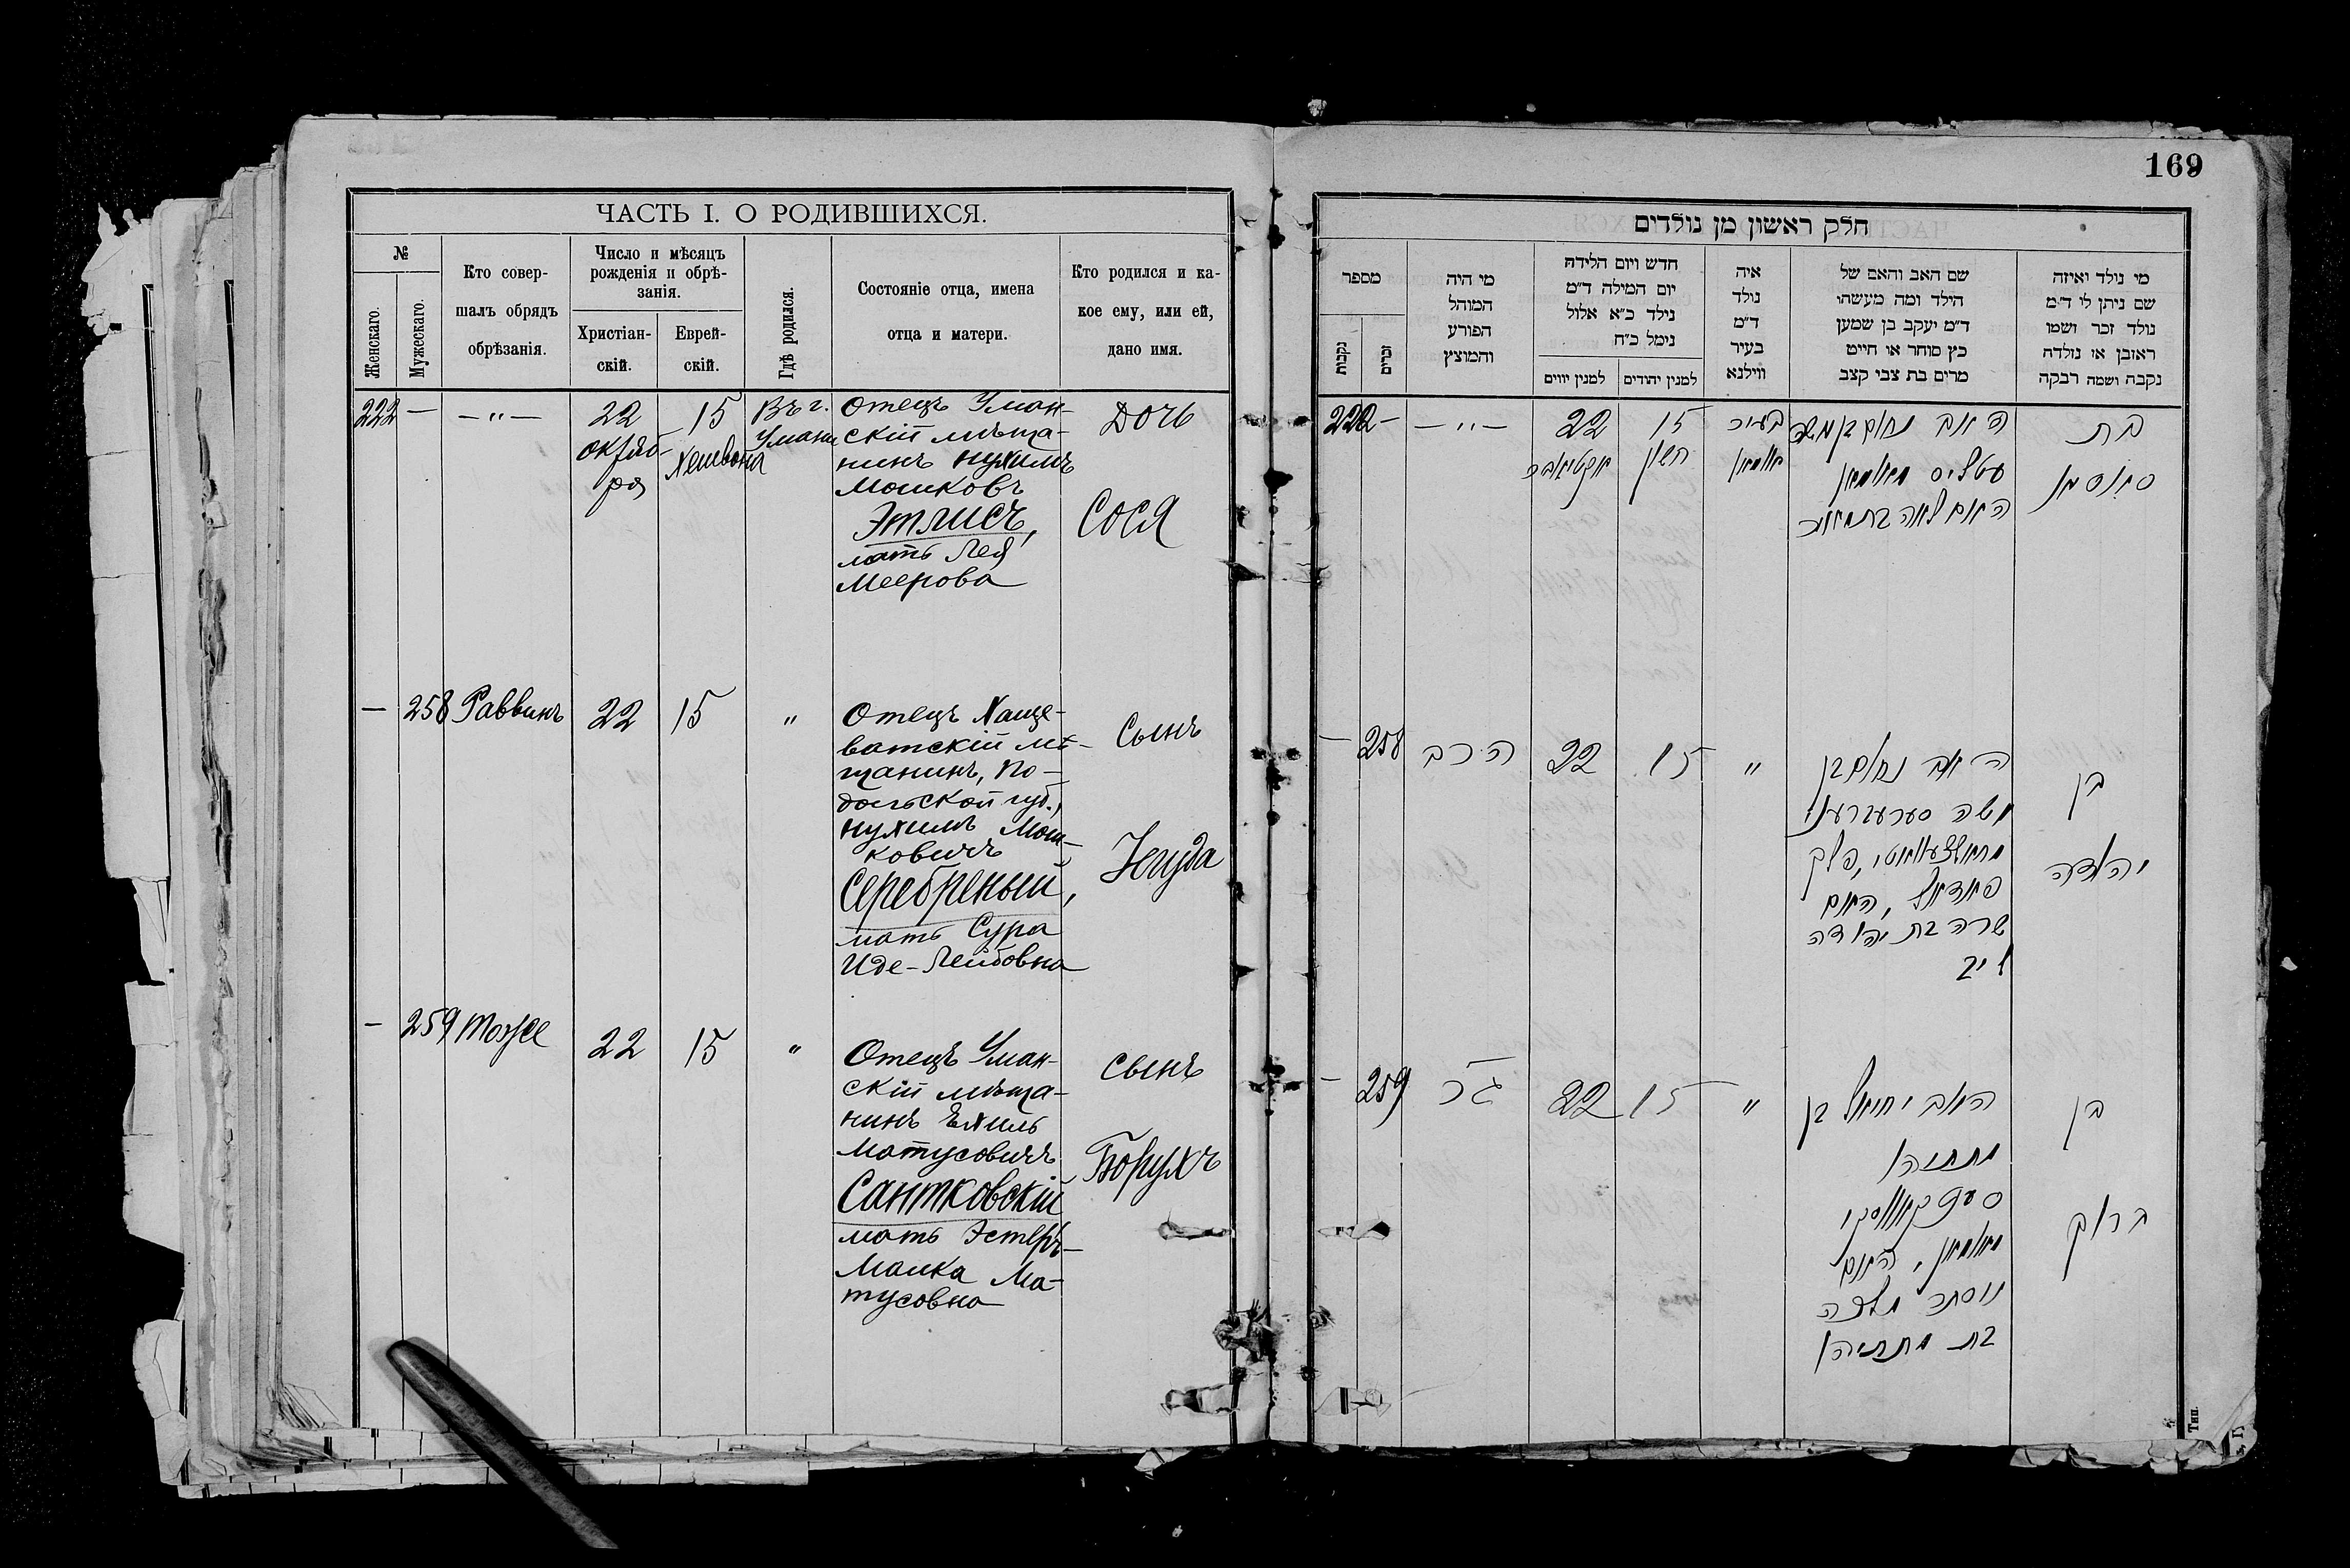 169
ЧАСТЬ I. О РОДИВШИХСЯ.
№
Женскаго.
Мужескаго.
Кто совер-
шалъ обрядъ
обрѣзанія.
Число и мѣсяцъ
рожденія и обрѣ-
занія.
Христіан-
скій.
Еврей-
скій.
Гдѣ родился.
Состояніе отца, имена
отца и матери.
Кто родился и ка-
кое ему, или ей,
дано имя.
222 —
— " —
22
октяб-
ря
15
Хешвона
Въ г.
Умани
Отецъ Уман-
скій мѣща-
нинъ Нухимъ
Мошковъ
Этлисъ,
мать Лея
Меерова
Дочь
Сося
— 258
Раввинъ
22
15
"
Отецъ Хаще-
ватскій мѣ-
щанинъ, По-
дольской губ.,
Нухимъ Мош-
ковичъ
Серебреный,
мать Сура
Иде-Лейбовна
Сынъ
Іегуда
— 259
Тотже
22
15
"
Отецъ Уман-
скій мѣща-
нинъ Ехиль
Матусовичъ
Сантковскій
мать Эстеръ-
Малка Ма-
тусовна
Сынъ
Борухъ
חלק ראשון מן נולדים
מספר
נקבות
זכרים
מי היה
המוהל
הפורע
והמוצץ
חדש ויום הלידה
יום המילה ד"מ
נילד כ"א אלול
נימל כ"ח
למנין יווים
למנין יהודים
איה
נולד
ד"מ
בעיר
ווילנא
שם האב והאם של
הילד ומה מעשהו
ד"מ יעקב בן שמען
כץ סוחר או חייט
מרים בת צבי קצב
מי נולד ואיזה
שם ניתן לי ד"מ
נולד זכר ושמו
ראובן או נולדה
נקבה ושמה רבקה
222 —
— " —
22
אקטיאבר
15
חשון
בעיר
אומאן
האב נחום בן משה
עטליס מאומאן
האם לאה בת מאיר
בת
סאסיא
— 258
הרב
22
15
"
האב נחום בן
משה סערעברענ
פלך
פאדאל, האם
שרה בת יהודה
ליב
בן
יהודה
— 259
22
15
"
האב יחיאל בן
מתתיהו
סענטקאווסקי
מאומאן, האם
אסתר מלכה
בת מתתיהו
בן
ברוך
Тип.